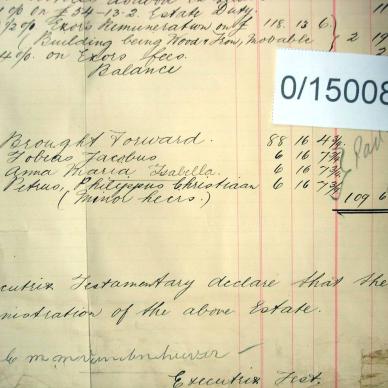 1% on £54-13-2 Estate Duty.
Exors Remuneration on £ 118 13 6
(Building being Wood & Iron, Movable 2 19
4% on Exors fees.
Balance
0/15008
Brought Forward. 88 16 4¾
Tobias Jacobus 6 16 7¾
Anna Maria Isabella. 6 16 7¾
Petrus, Philippus Christiaan 6 16 7¾
(Minor heirs.) 109 6
cutrix Testamentary declare that the
nistration of the above Estate.
Executrix Test.